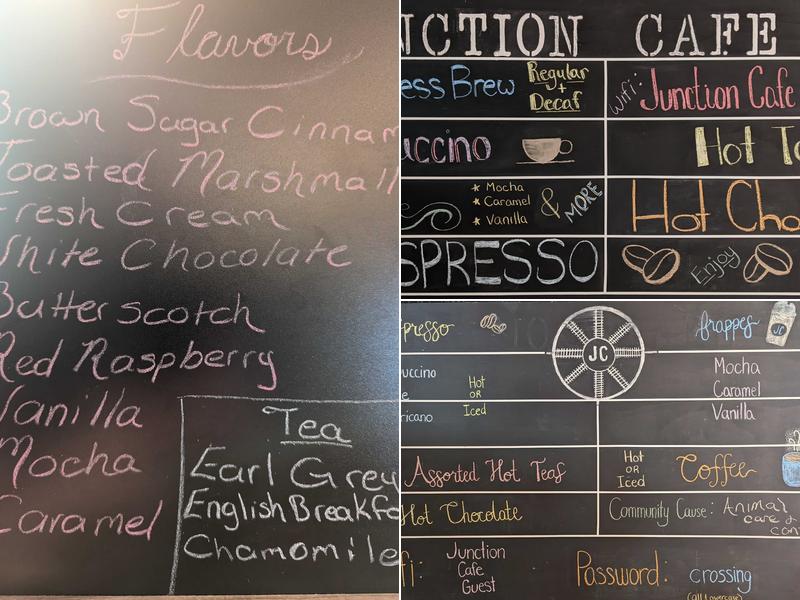 Flavors
Brown Sugar Cinnam
Toasted Marshmall
Fresh Cream
White Chocolate
Butterscotch
Red Raspberry
Vanilla
Mocha
Caramel
Tea
Earl Grey
English Breakfa
Chamomile
NCTION CAFE
ess Brew Regular
+
Decaf
Wifi: Junction Cafe
uccino
Hot Te
Mocha
Caramel
Vanilla
& MORE
Hot Cho
SPRESSO
Enjoy
presso
JC
frappes
JC
uccino
Hot
OR
Iced
ricano
Mocha
Caramel
Vanilla
Assorted Hot Teas
Hot
OR
Iced
Coffee
Hot Chocolate
Community Cause: Animal
care &
con
fi:
Junction
Cafe
Guest
Password: crossing
(all lowercase)